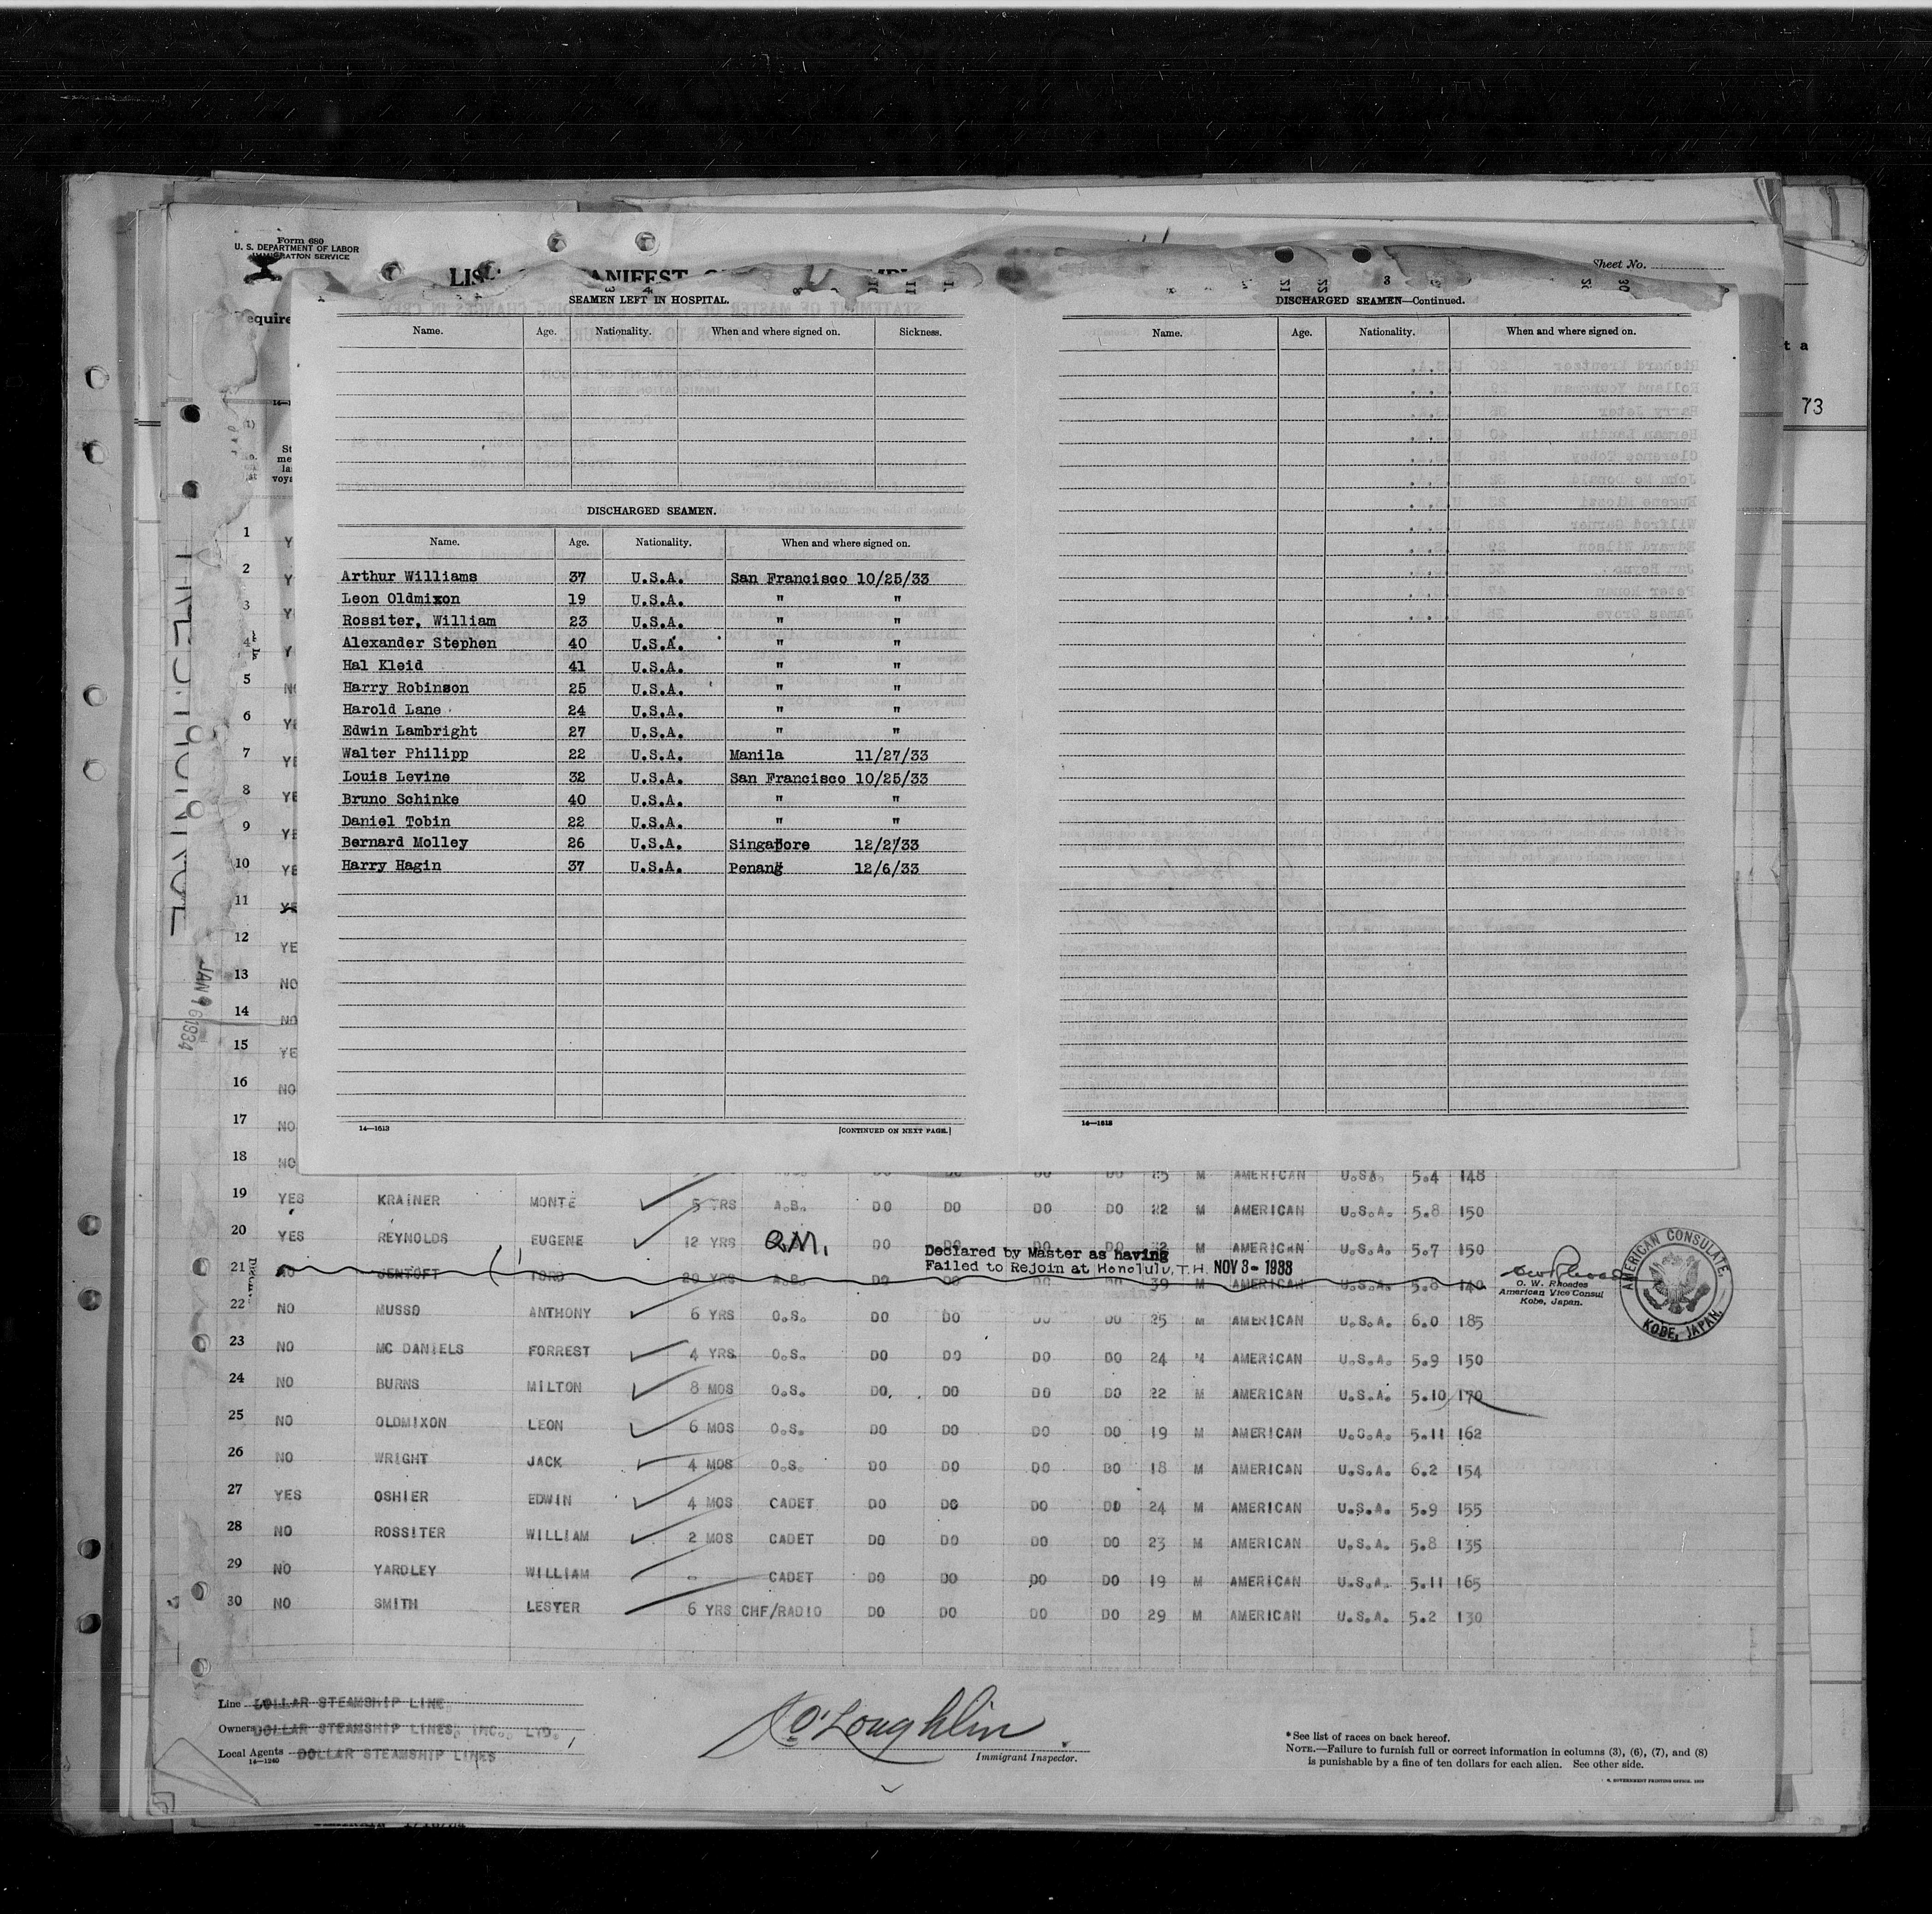 Form 680
U. S. DEPARTMENT OF LABOR
IMMIGRATION SERVICE
Sheet No.
SEAMEN LEFT IN HOSPITAL.
Name. Age. Nationality. When and where signed on. Sickness.
DISCHARGED SEAMEN.
Name. Age. Nationality. When and where signed on.
Arthur Williams 37 U.S.A. San Francisco 10/25/33
Leon Oldmixon 19 U.S.A. " "
Rossiter, William 23 U.S.A. " "
Alexander Stephen 40 U.S.A. " "
Hal Kleid 41 U.S.A. " "
Harry Robinson 25 U.S.A. " "
Harold Lane 24 U.S.A. " "
Edwin Lambright 27 U.S.A. " "
Walter Philipp 22 U.S.A. Manila 11/27/33
Louis Levine 32 U.S.A. San Francisco 10/25/33
Bruno Schinke 40 U.S.A. " "
Daniel Tobin 22 U.S.A. " "
Bernard Molley 26 U.S.A. Singapore 12/2/33
Harry Hagin 37 U.S.A. Penang 12/6/33
14—1613 [CONTINUED ON NEXT PAGE.]
DISCHARGED SEAMEN—Continued.
Name. Age. Nationality. When and where signed on.
14—1613
73
JAN 1934
1
2
3
4
5
6
7
8
9
10
11
12 YE
13 NO
14 NO
15 YE
16 NO
17 NO
18 NO DO DO DO DO 23 M AMERICAN U.S.A. 5.4 148
19 YES KRAINER MONTE 5 YRS A.B. DO DO DO DO 22 M AMERICAN U.S.A. 5.8 150
20 YES REYNOLDS EUGENE 12 YRS Q.M. DO DO DO DO 32 M AMERICAN U.S.A. 5.7 150
Declared by Master as having
Failed to Rejoin at Honolulu, T.H. NOV 3 - 1933
21 NO JENTOFT TORD 20 YRS A.B. DO DO DO DO 39 M AMERICAN U.S.A. 5.8 140
O. W. Rhoades
American Vice Consul
Kobe, Japan.
AMERICAN CONSULATE, KOBE, JAPAN.
22 NO MUSSO ANTHONY 6 YRS O.S. DO DO DO DO 25 M AMERICAN U.S.A. 6.0 185
23 NO MC DANIELS FORREST 4 YRS O.S. DO DO DO DO 24 M AMERICAN U.S.A. 5.9 150
24 NO BURNS MILTON 8 MOS O.S. DO DO DO DO 22 M AMERICAN U.S.A. 5.10 170
25 NO OLDMIXON LEON 6 MOS O.S. DO DO DO DO 19 M AMERICAN U.S.A. 5.11 162
26 NO WRIGHT JACK 4 MOS O.S. DO DO DO DO 18 M AMERICAN U.S.A. 6.2 154
27 YES OSHIER EDWIN 4 MOS CADET DO DO DO DO 24 M AMERICAN U.S.A. 5.9 155
28 NO ROSSITER WILLIAM 2 MOS CADET DO DO DO DO 23 M AMERICAN U.S.A. 5.8 135
29 NO YARDLEY WILLIAM - CADET DO DO DO DO 19 M AMERICAN U.S.A. 5.11 165
30 NO SMITH LESTER 6 YRS CHF/RADIO DO DO DO DO 29 M AMERICAN U.S.A. 5.2 130
Line DOLLAR STEAMSHIP LINE
Owners DOLLAR STEAMSHIP LINES, INC., LTD.
Local Agents DOLLAR STEAMSHIP LINES
14—1240
O'Loughlin
Immigrant Inspector.
* See list of races on back hereof.
NOTE.—Failure to furnish full or correct information in columns (3), (6), (7), and (8)
is punishable by a fine of ten dollars for each alien. See other side.